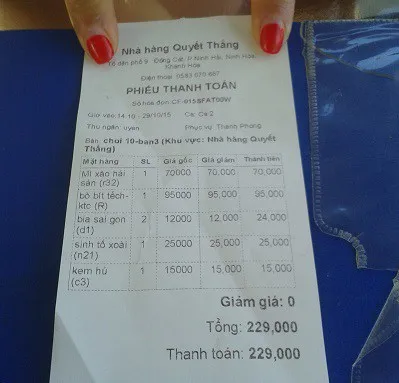 Nhà hàng Quyết Thắng
Tổ dân phố 9 Đông Cát, P. Ninh Hải, Ninh Hòa,
Khánh Hòa
Điện thoại: 0583 670 687
PHIẾU THANH TOÁN
Số hóa đơn:
Giờ vào: 14:10 - 28/10/15 Ca: Ca 2
Thu ngân: uyen Phục vụ: Thanh Phong
Bàn: chơi 10-ban3 (Khu vực: Nhà hàng Quyết
Thắng)
Mặt hàng SL Giá gốc Giá giảm Thành tiền
Mì xào hải 1 70000 70,000 70,000
sản (r32)
bò bít têch- 1 95000 95,000 95,000
ktc (R)
bia sài gòn 2 12000 12,000 24,000
(d1)
sinh tố xoài 1 25000 25,000 25,000
(n21)
kem hủ 1 15000 15,000 15,000
(c3)
Giảm giá: 0
Tổng: 229,000
Thanh toán: 229,000